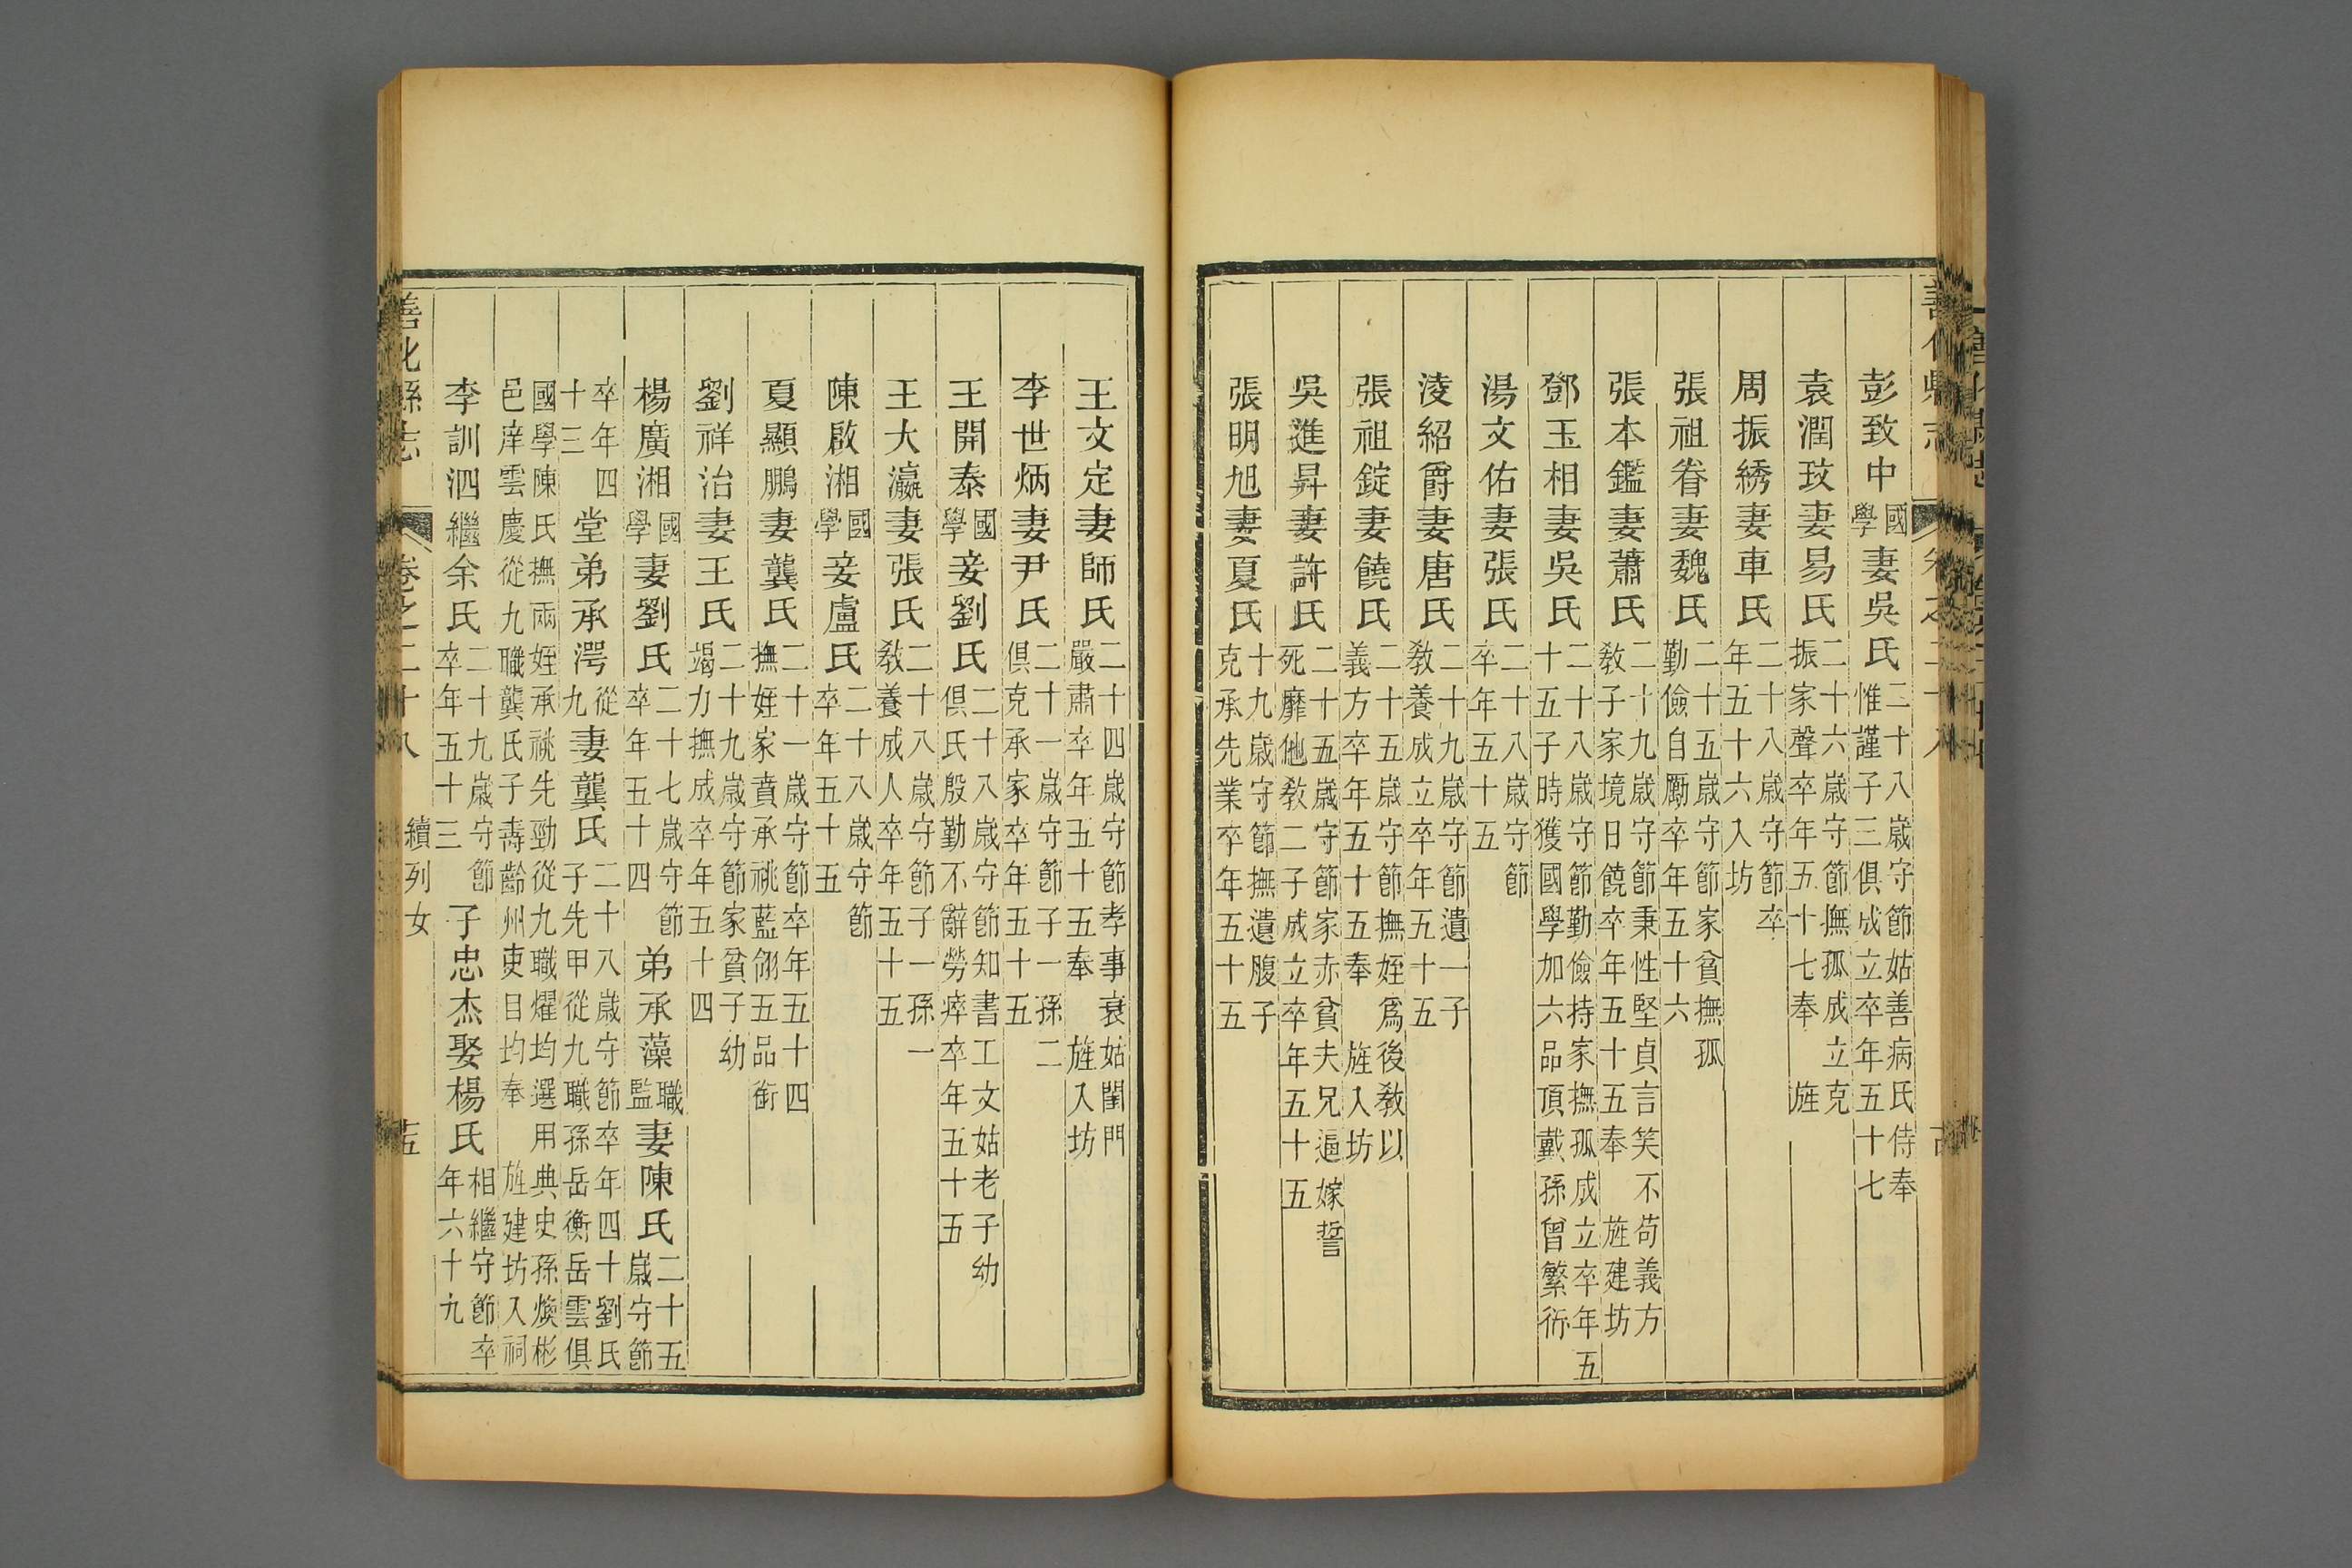 彭致中國學妻吳氏二十八歲守節姑善病氏侍奉惟謹子三俱成立卒年五十七
袁潤玟妻易氏二十六歲守節撫孤成立克振家聲卒年五十七奉 旌
周振綉妻車氏二十八歲守節卒年五十六入坊
張祖眷妻魏氏二十五歲守節家貧撫孤勤儉自勵卒年五十六
張本鑑妻蕭氏二十九歲守節秉性堅貞言笑不苟義方敎子家境日饒卒年五十五奉 旌建坊
鄧玉相妻吳氏二十八歲守節勤儉持家撫孤成立卒年五十五子時獲國學加六品頂戴孫曾繁衍
湯文佑妻張氏二十八歲守節卒年五十五
淩紹爵妻唐氏二十九歲守節遺一子敎養成立卒年五十五
張祖錠妻饒氏二十五歲守節撫姪爲後敎以義方卒年五十五奉 旌入坊
吳進昇妻許氏二十五歲守節家赤貧夫兄逼嫁誓死靡他敎二子成立卒年五十五
張明旭妻夏氏十九歲守節撫遺腹子克承先業卒年五十五
王文定妻師氏二十四歲守節孝事衰姑閨門嚴肅卒年五十五奉 旌入坊
李世炳妻尹氏二十一歲守節子一孫二俱克承家卒年五十五
王開泰國學妾劉氏二十八歲守節知書工文姑老子幼俱氏殷勤不辭勞瘁卒年五十五
王大瀛妻張氏二十八歲守節子一孫一敎養成人卒年五十五
陳啟湘國學妾盧氏二十八歲守節卒年五十五
夏顯鵬妻龔氏二十一歲守節卒年五十四撫姪家賁承祧藍翎五品銜
劉祥治妻王氏二十九歲守節家貧子幼竭力撫成卒年五十四
楊廣湘國學妻劉氏二十七歲守節卒年五十四弟承藻職監妻陳氏二十五歲守節
卒年四十三堂弟承涄從九妻龔氏二十八歲守節卒年四十劉氏子先甲從九職孫岳衡岳雲俱
國學陳氏撫兩姪承祧先勁從九職燿均選用典史孫煥彬邑庠雲慶從九職龔氏子壽齡州吏目均奉 旌建坊入祠
李訓泗繼余氏二十九歲守節卒年五十三子忠杰娶楊氏相繼守節卒年六十九
善化縣志 卷之二十八 續列女 十五